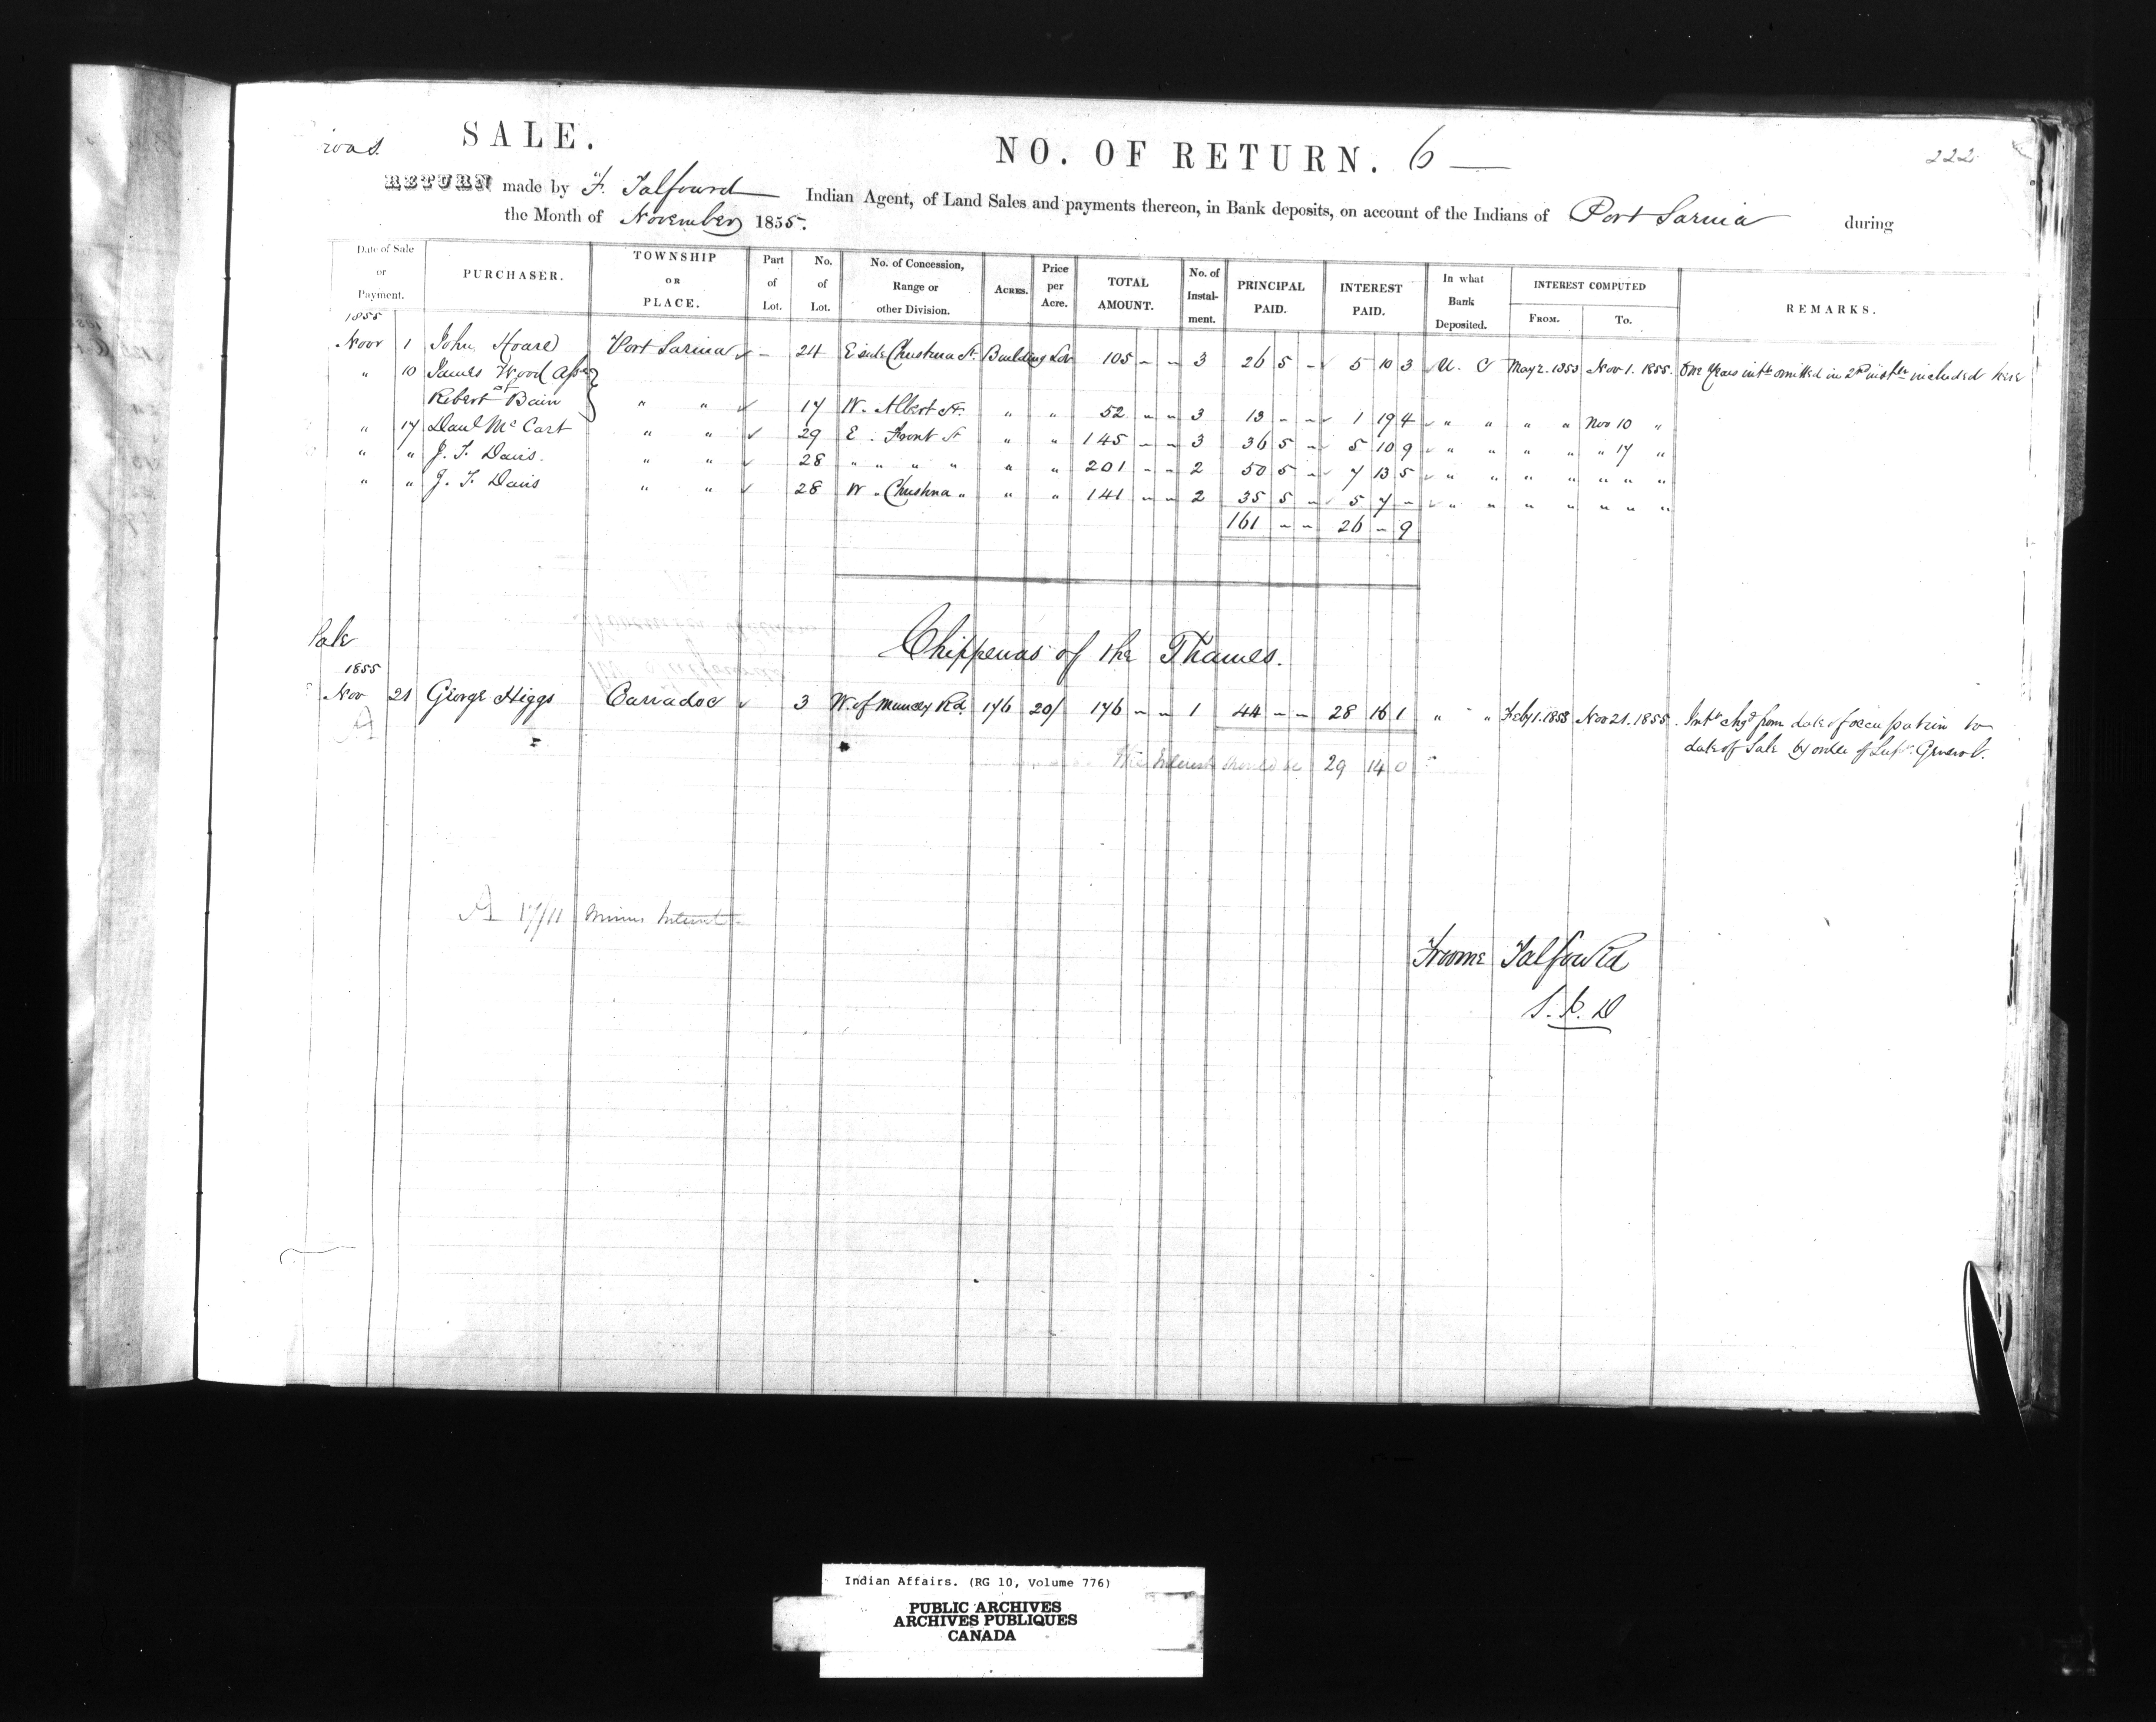 SALE.
NO. OF RETURN. 6 —
222
RETURN made by F. Talfourd Indian Agent, of Land Sales and payments thereon, in Bank deposits, on account of the Indians of Port Sarnia during
the Month of November 1855.
Date of Sale or Payment. | PURCHASER. | TOWNSHIP OR PLACE. | Part of Lot. | No. of Lot. | No. of Concession, Range or other Division. | ACRES. | Price per Acre. | TOTAL AMOUNT. | No. of Instal-ment. | PRINCIPAL PAID. | INTEREST PAID. | In what Bank Deposited. | INTEREST COMPUTED FROM. | TO. | REMARKS.
1855
Novr 1 John Hoare Port Sarnia ✓ – 24 E side Christina St. Building Lot 105 – – 3 26 5 – ✓ 5 10 3 ✓ U. C May 2. 1853 Nov 1. 1855. One years intt omitted in 2nd instt included here
" 10 James Wood Asse }
of
Robert Bain } " " ✓ 17 W. Albert St. " " 52 – – 3 13 – – ✓ 1 19 4 ✓ " " " " Nov 10 "
" 17 Danl McCart " " ✓ 29 E. Front St " " 145 – – 3 36 5 – ✓ 5 10 9 ✓ " " " " " 17 "
" " J. F. Davis. " " ✓ 28 " " " " " " 201 – – 2 50 5 – ✓ 7 13 5 ✓ " " " " " " "
" " J. F. Davis " " ✓ 28 W " Christina " " " 141 – – 2 35 5 – ✓ 5 7 – ✓ " " " " " " "
161 – – 26 – 9
Chippewas of the Thames.
Sale
1855
Nov 21 George Higgs Carradoc ✓ 3 W. of Muncey Rd. 176 20/ 176 – – 1 44 – – 28 16 1 " " Feby 1. 1853 Nov 21. 1855. Intt chgd from date of occupation to
date of Sale by order of Supt. General.
A
The Interest should be 29 14 0
A 17/11 minus Interest.
Froome Talfourd
Indian Affairs. (RG 10, Volume 776)
PUBLIC ARCHIVES
ARCHIVES PUBLIQUES
CANADA